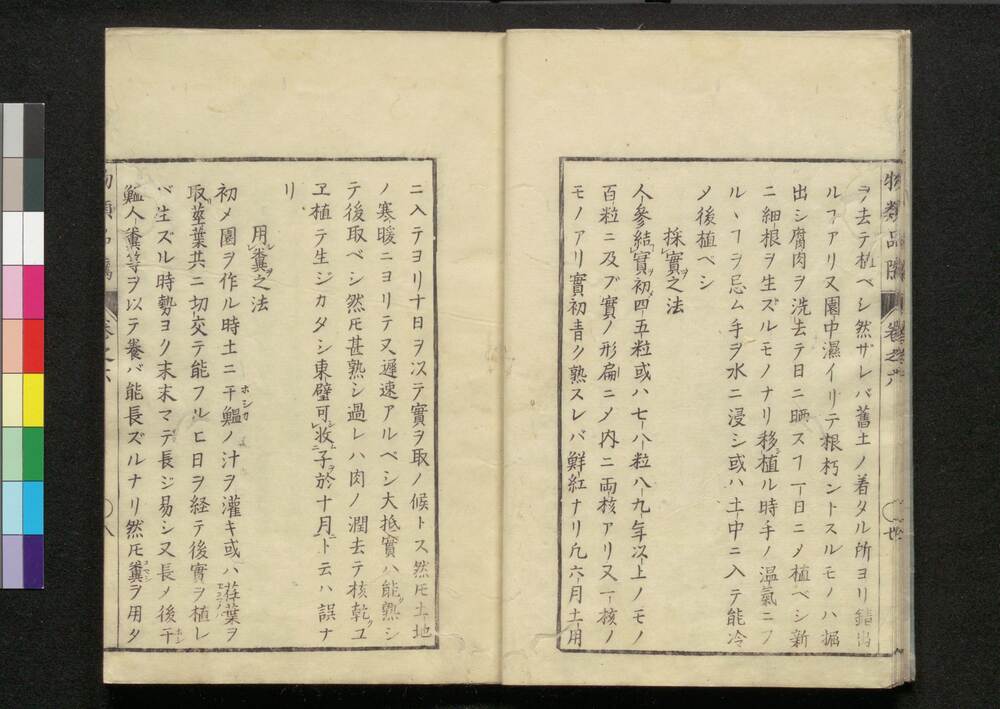 ヲ去テ植ベシ然ザレバ舊土ノ着タル所ヨリ
ルヿアリ又園中濕イリテ根朽ントスルモノハ掘
出シ腐肉ヲ洗去テ日ニ晒スヿ一日ニ〆植ベシ新
ニ細根ヲ生ズルモノナリ移植ル時手ノ温氣ニフ
ルヽヿヲ忌ム手ヲ水ニ浸シ或ハ土中ニ入テ能冷
〆後植ベシ
採實之法
人參結實初四五粒或ハ七八粒八九年次上ノモノ
百粒ニ及ブ實ノ形扁ニ〆内ニ両核アリ又一核ノ
モノアリ實初青ク熟スレバ鮮紅ナリ凢六月土用
物類品隲 巻之六
ニ入テヨリ十日ヲ以テ實ヲ取ノ候トス然㆑土地
ノ寒暖ニヨリテ又遲速アルベシ大抵實ハ能熟シ
テ後取ベシ然㆑甚熟シ過レハ肉ノ潤去テ核乾ユ
ヱ植テ生ジカタシ東璧可收子於十月ト云ハ誤ナ
リ
用糞之法
初メ園ヲ作ル時土ニ干鰮ノ汁ヲ灌キ或ハ荏葉ヲ
取莖葉共ニ切交テ能フルヒ日ヲ経テ後實ヲ植レ
バ生ズル時勢ヨク末末マデ長ジ易シ又長〆後干
鰮人糞等ヲ以テ養バ能長ズルナリ然㆑糞ヲ用タ
物類品隲 巻之六 八